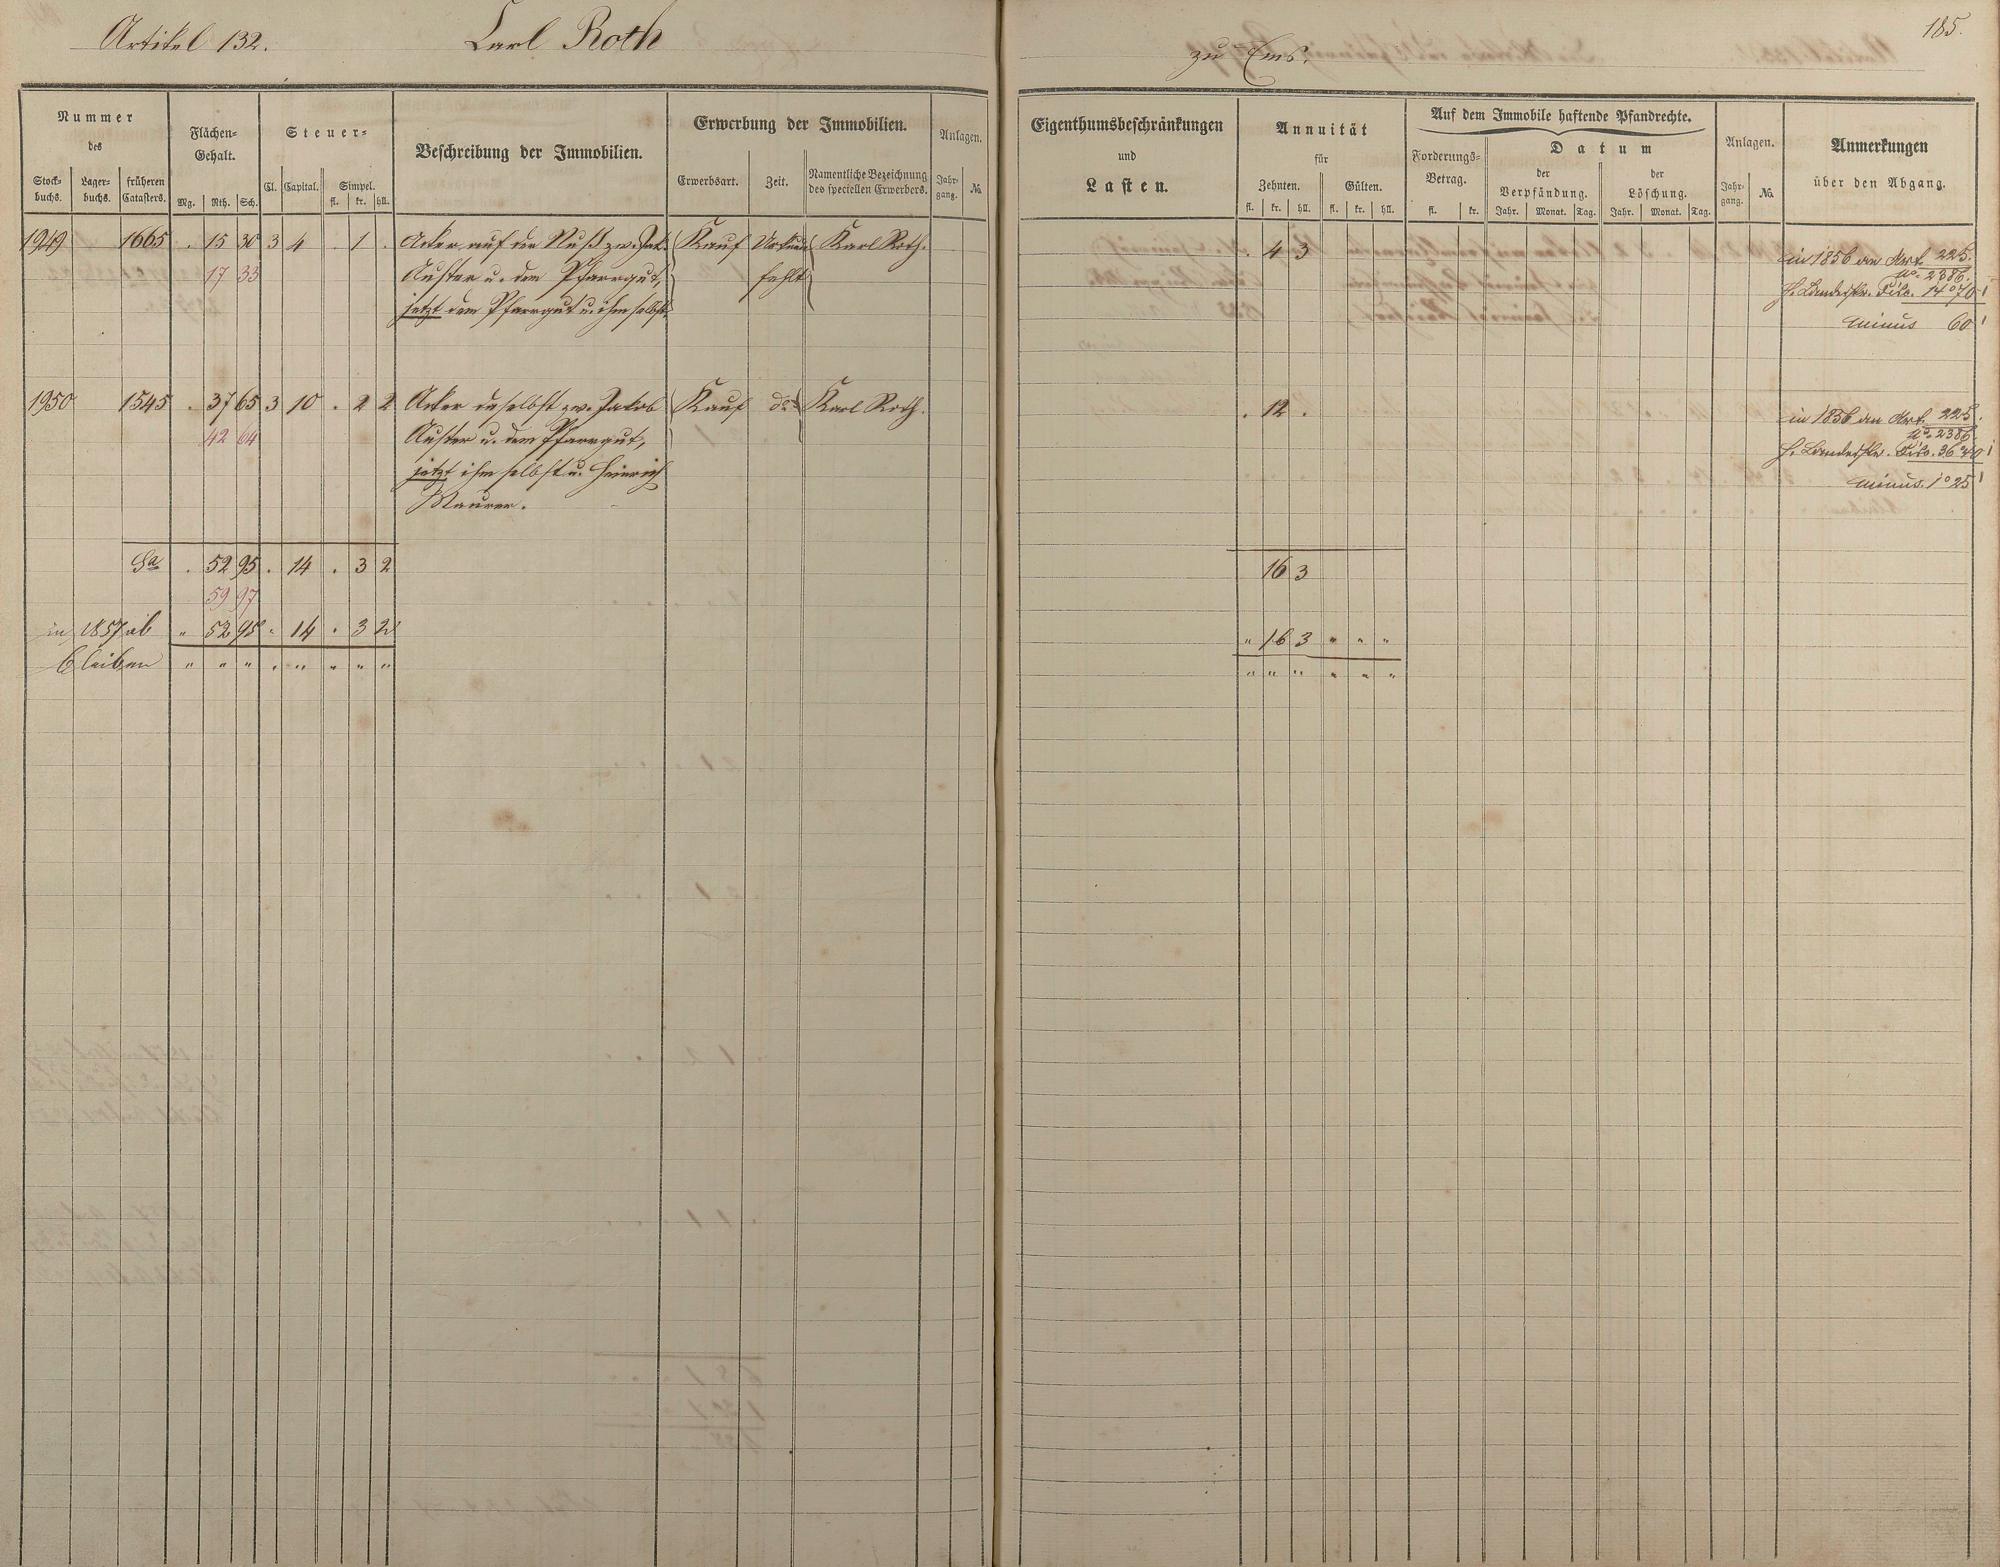 Artikel 132. Carl Roth
zu Ems. 185.
Nummer des
Stockbuchs. Lagerbuchs. früheren Catasters.
Flächen-Gehalt.
Mg. Rth. Sch.
Steuer-
Cl. Capital. Simpel.
fl. kr. hll.
Beschreibung der Immobilien.
Erwerbung der Immobilien.
Erwerbsart. Zeit. Namentliche Bezeichnung des speciellen Erwerbers.
Anlagen.
Jahrgang. No.
Eigenthumsbeschränkungen
und
Lasten.
Annuität
für
Zehnten. Gülten.
fl. kr. hll. fl. kr. hll.
Auf dem Immobile haftende Pfandrechte.
Forderungs-Betrag.
fl. kr.
Datum
der Verpfändung. der Löschung.
Jahr. Monat. Tag. Jahr. Monat. Tag.
Anlagen.
Jahrgang. No.
Anmerkungen
über den Abgang.
1949 1665 . 15 30 3 4 . 1 . Acker auf der Nuß zw. Jak. Kauf Urkunde Karl Roth. . 4 3 in 1856 an Art. 225.
17 33 Auster u. dem Pfarrgut, fehlt No. 2386.
jetzt dem Pfarrgut u. ihm selbst 14° 70'
minus 60'
1950 1545 . 37 65 3 10 . 2 2 Acker daselbst zw. Jakob Kauf do Karl Roth. . 12 . in 1856 an Art. 225.
42 64 Auster u. dem Pfarrgut, No. 2386.
jetzt ihm selbst u. Heinrich 36° 40'
Maurer. minus. 1° 25'
Sa . 52 95 . 14 . 3 2 16 3
59 97
in 1857 ab " 52 95 " 14 " 3 2 " 16 3 " " "
bleiben " " " " " " " " " " " " " "